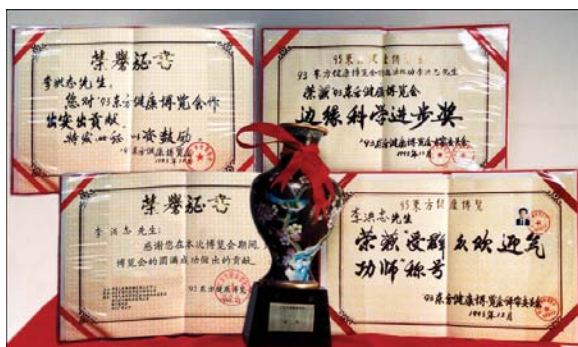 荣誉证书
李洪志先生:
您对'93东方健康博览会作
出突出贡献,
特发此证,以资鼓励。
'93东方健康博览会
1993年12月
93东方健康博览会
李洪志先生
荣获'93东方健康博览会
边缘科学进步奖
'93东方健康博览会
1993年12月
荣誉证书
李洪志先生:
感谢您在本次博览会期间,
博览会的圆满成功做出的贡献。
93东方健康博览
93东方健康博览
李洪志先生
荣获"受群众欢迎气
功师"称号
'93东方健康博览会评审委员会
1993年12月